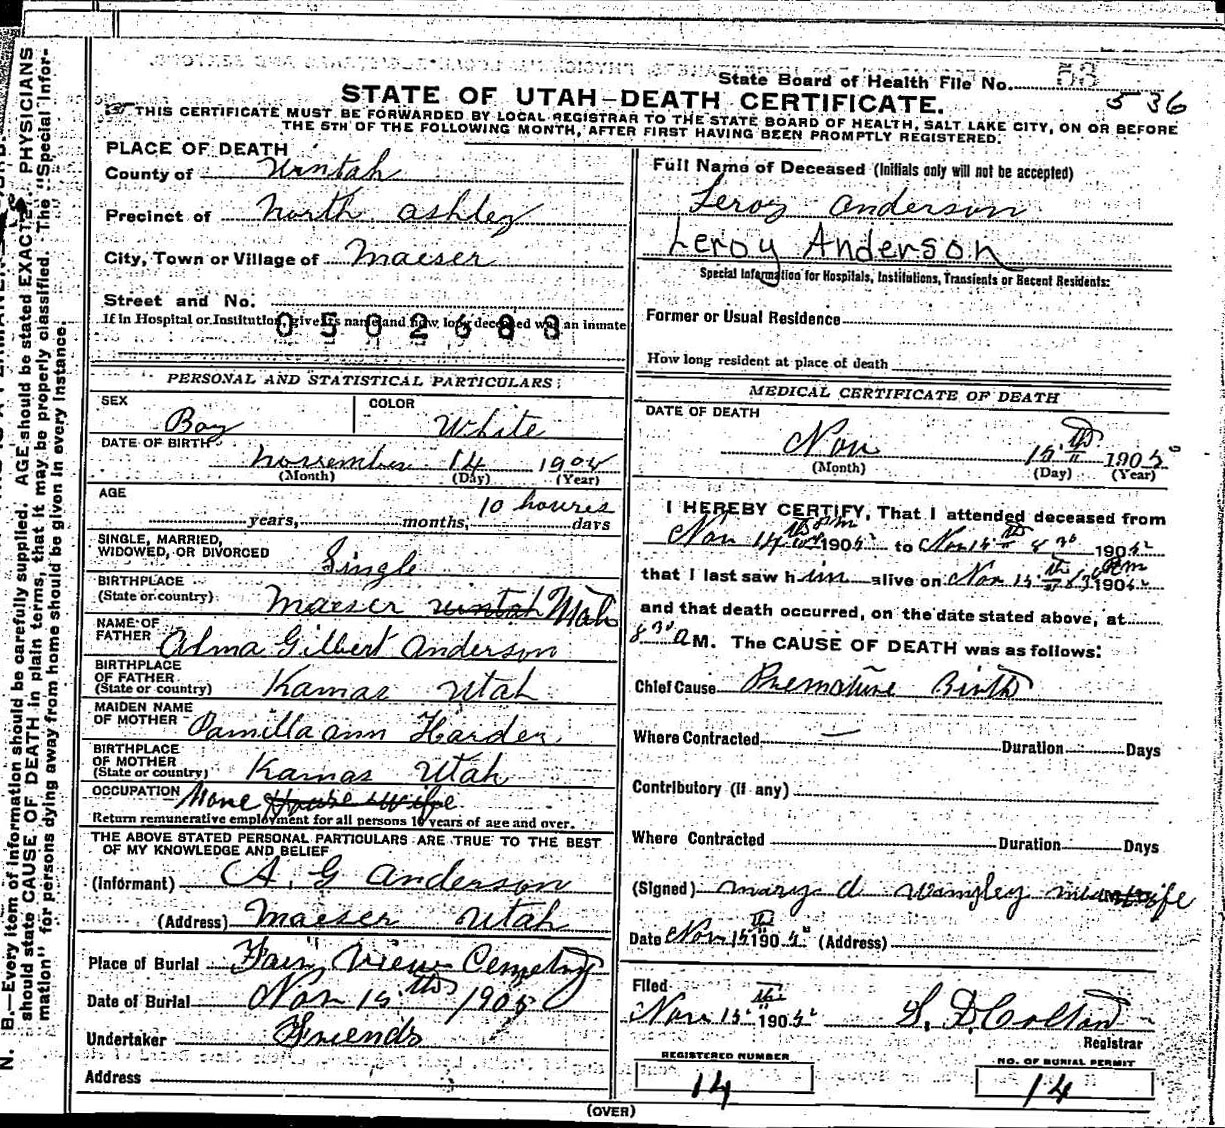 State Board of Health File No. 53
536
STATE OF UTAH-DEATH CERTIFICATE.
THIS CERTIFICATE MUST BE FORWARDED BY LOCAL REGISTRAR TO THE STATE BOARD OF HEALTH, SALT LAKE CITY, ON OR BEFORE
THE 5TH OF THE FOLLOWING MONTH, AFTER FIRST HAVING BEEN PROMPTLY REGISTERED.
PLACE OF DEATH
County of Uintah
Precinct of North Ashley
City, Town or Village of Maeser
Street and No.
If in Hospital or Institution, give its name and how long deceased was an inmate
0502688
PERSONAL AND STATISTICAL PARTICULARS
SEX Boy
COLOR White
DATE OF BIRTH November 14 190
(Month) (Day) (Year)
AGE 10 houres
years, months, days
SINGLE, MARRIED,
WIDOWED, OR DIVORCED Single
BIRTHPLACE
(State or country) Maeser Uintah Utah
NAME OF
FATHER Alma Gilbert Anderson
BIRTHPLACE
OF FATHER
(State or country) Kamas Utah
MAIDEN NAME
OF MOTHER Pamilla ann Harder
BIRTHPLACE
OF MOTHER
(State or country) Kamas Utah
OCCUPATION None House wife
Return remunerative employment for all persons 10 years of age and over.
THE ABOVE STATED PERSONAL PARTICULARS ARE TRUE TO THE BEST
OF MY KNOWLEDGE AND BELIEF
(Informant) A. G Anderson
(Address) Maeser Utah
Place of Burial Fair View Cemetry
Date of Burial Nov 15th 1905
Undertaker Friends
Address
Full Name of Deceased (Initials only will not be accepted)
Leroy Anderson
Leroy Anderson
Special Information for Hospitals, Institutions, Transients or Recent Residents:
Former or Usual Residence
How long resident at place of death
MEDICAL CERTIFICATE OF DEATH
DATE OF DEATH
Nov 15th 1905
(Month) (Day) (Year)
I HEREBY CERTIFY, That I attended deceased from
Nov 14th 1905 to Nov 15th 8 30 1905
that I last saw him alive on Nov 15th 8 30 1905
and that death occurred, on the date stated above, at
8 30 a M. The CAUSE OF DEATH was as follows:
Chief Cause Premature Birth
Where Contracted — Duration Days
Contributory (if any)
Where Contracted Duration Days
(Signed) Mary d midwife
Date Nov 15th 1905 (Address)
Filed
Nov 15th 1905 S. D. Colton
Registrar
REGISTERED NUMBER
14
NO. OF BURIAL PERMIT
14
(OVER)
N. B.—Every item of information should be carefully supplied. AGE should be stated EXACTLY. PHYSICIANS
should state CAUSE OF DEATH in plain terms, that it may be properly classified. The "Special Infor-
mation" for persons dying away from home should be given in every instance.